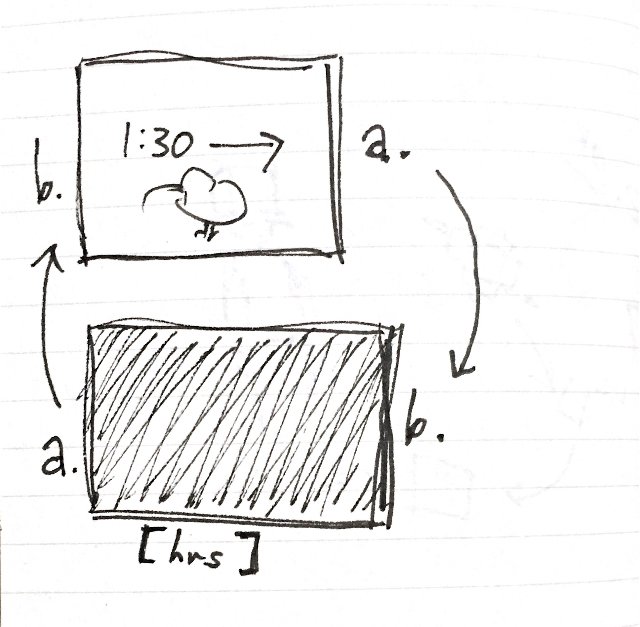 1:30 → a.
b.
a.
b.
[hrs]